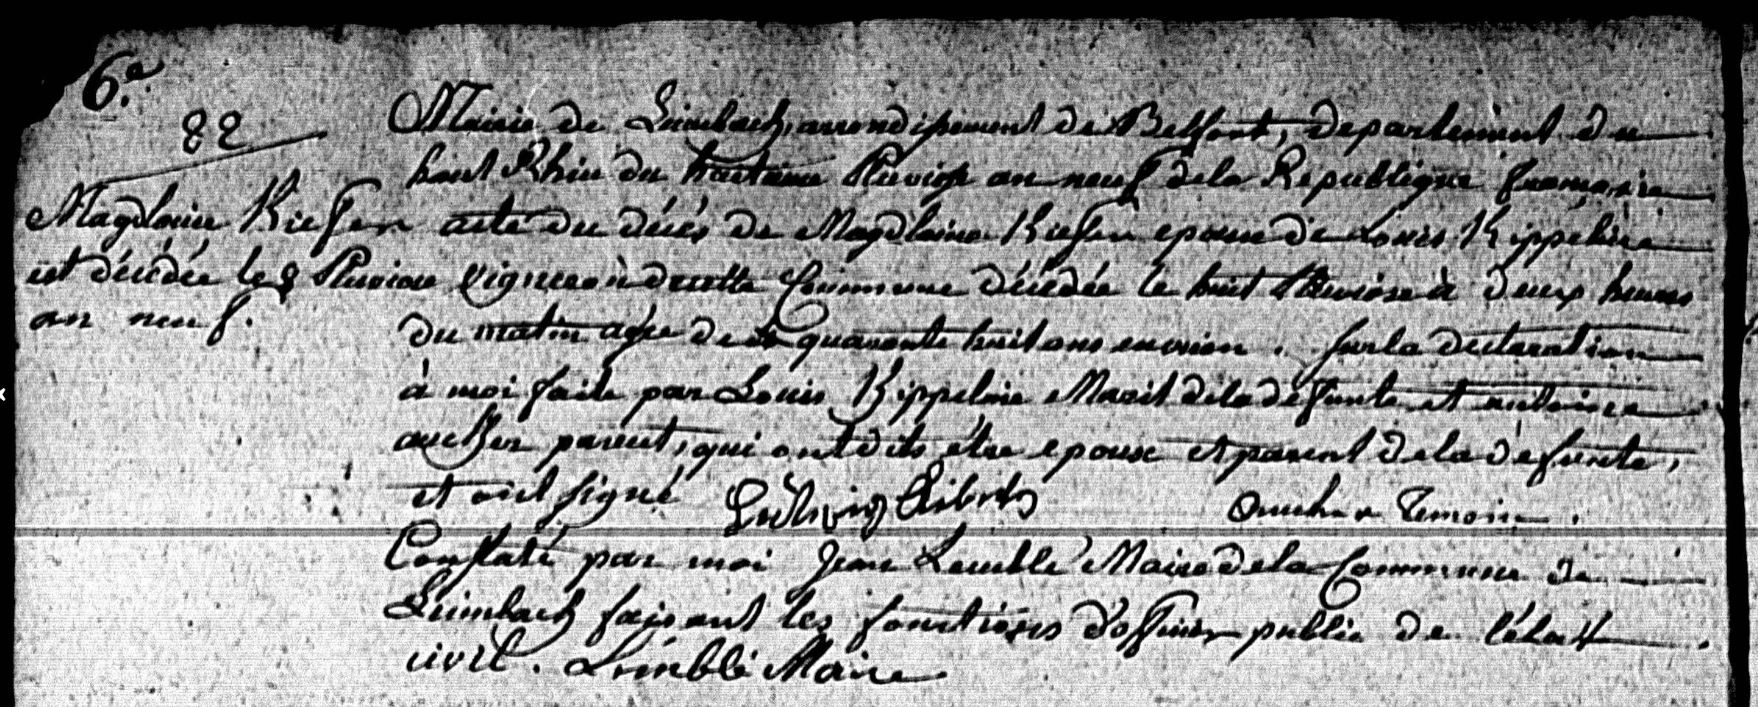 6.e
22
Magdlaine Kiefer
est décédée le 8 Pluviose
an neuf.
Mairie de Leimbach, arrondissement de Belfort, departement du
haut Rhin du huitième Pluviose an neuf de la Republique francaise
acte du décès de Magdlaine Kiefer epouse de Louis Kippeline
vigneron de cette Commune décédée le huit Pluviose à deux heures
du matin agée de quarante huit ans environ. sur la déclaration
à moi faite par Louis Kippeline Marit de la défunte et antoine
parent, qui ont dits être epoux et parent de la défunte,
et ont signé Temoin.
Constaté par moi Jean Lemblé Maire de la Commune de
Leimbach faisant les fonctions d'officier public de l'état
civil. Lemblé Maire